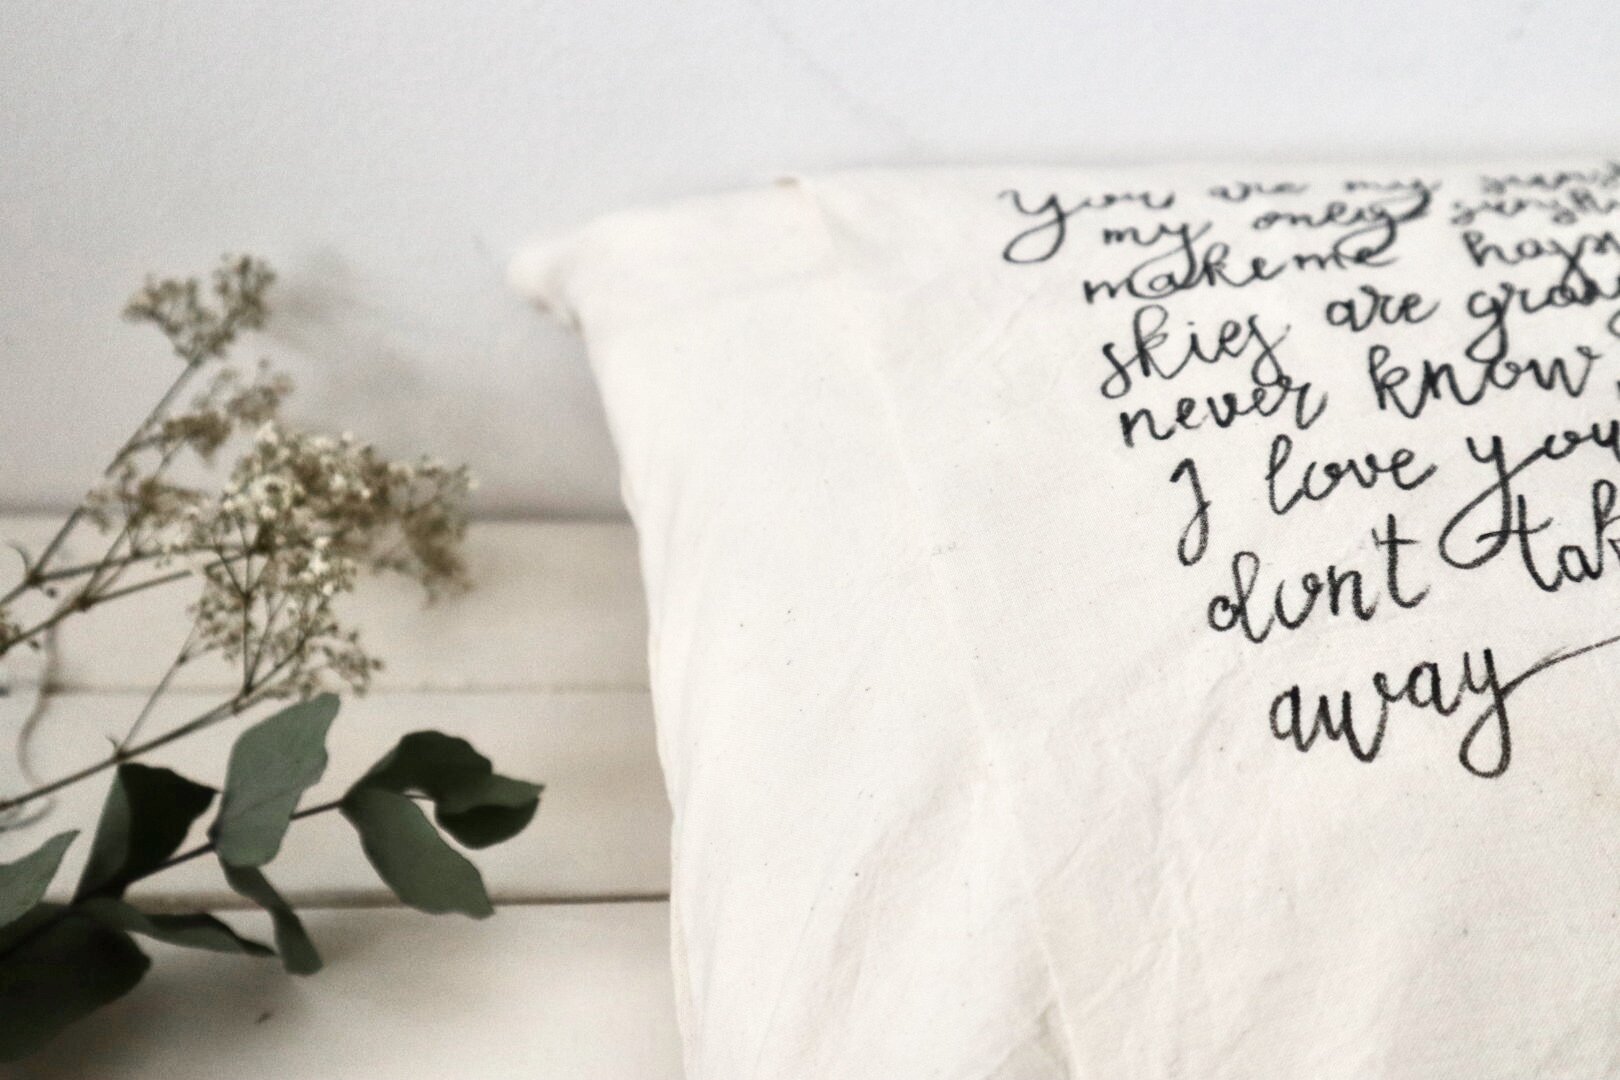 You are my
my only
make me
skies are
never know
I love you
dont
away